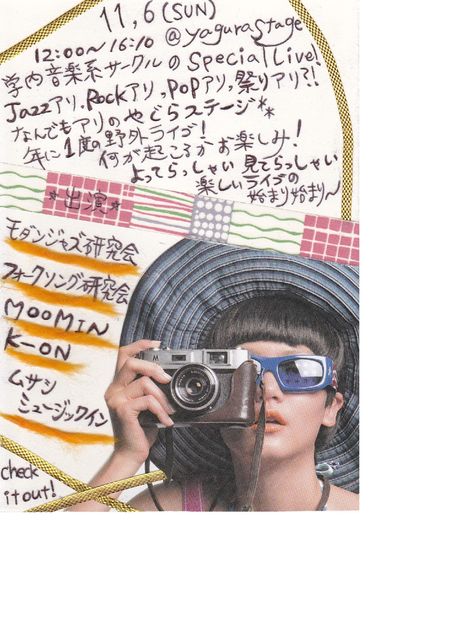 11,6(SUN)
12:00〜16:10 @yagurastage
学内音楽系サークルのSpecial Live!
Jazzアリ,Rockアリ,POPアリ,祭りアリ?!
なんでもアリのやぐらステージ**
年に1度の野外ライブ!
何が起こるかお楽しみ!
よってらっしゃい見てらっしゃい
楽しいライブの
始まり始まり〜
*出演*
モダンジャズ研究会
フォークソング研究会
MOOMIN
K-ON
ムサシ
ミュージックイン
check
it out!